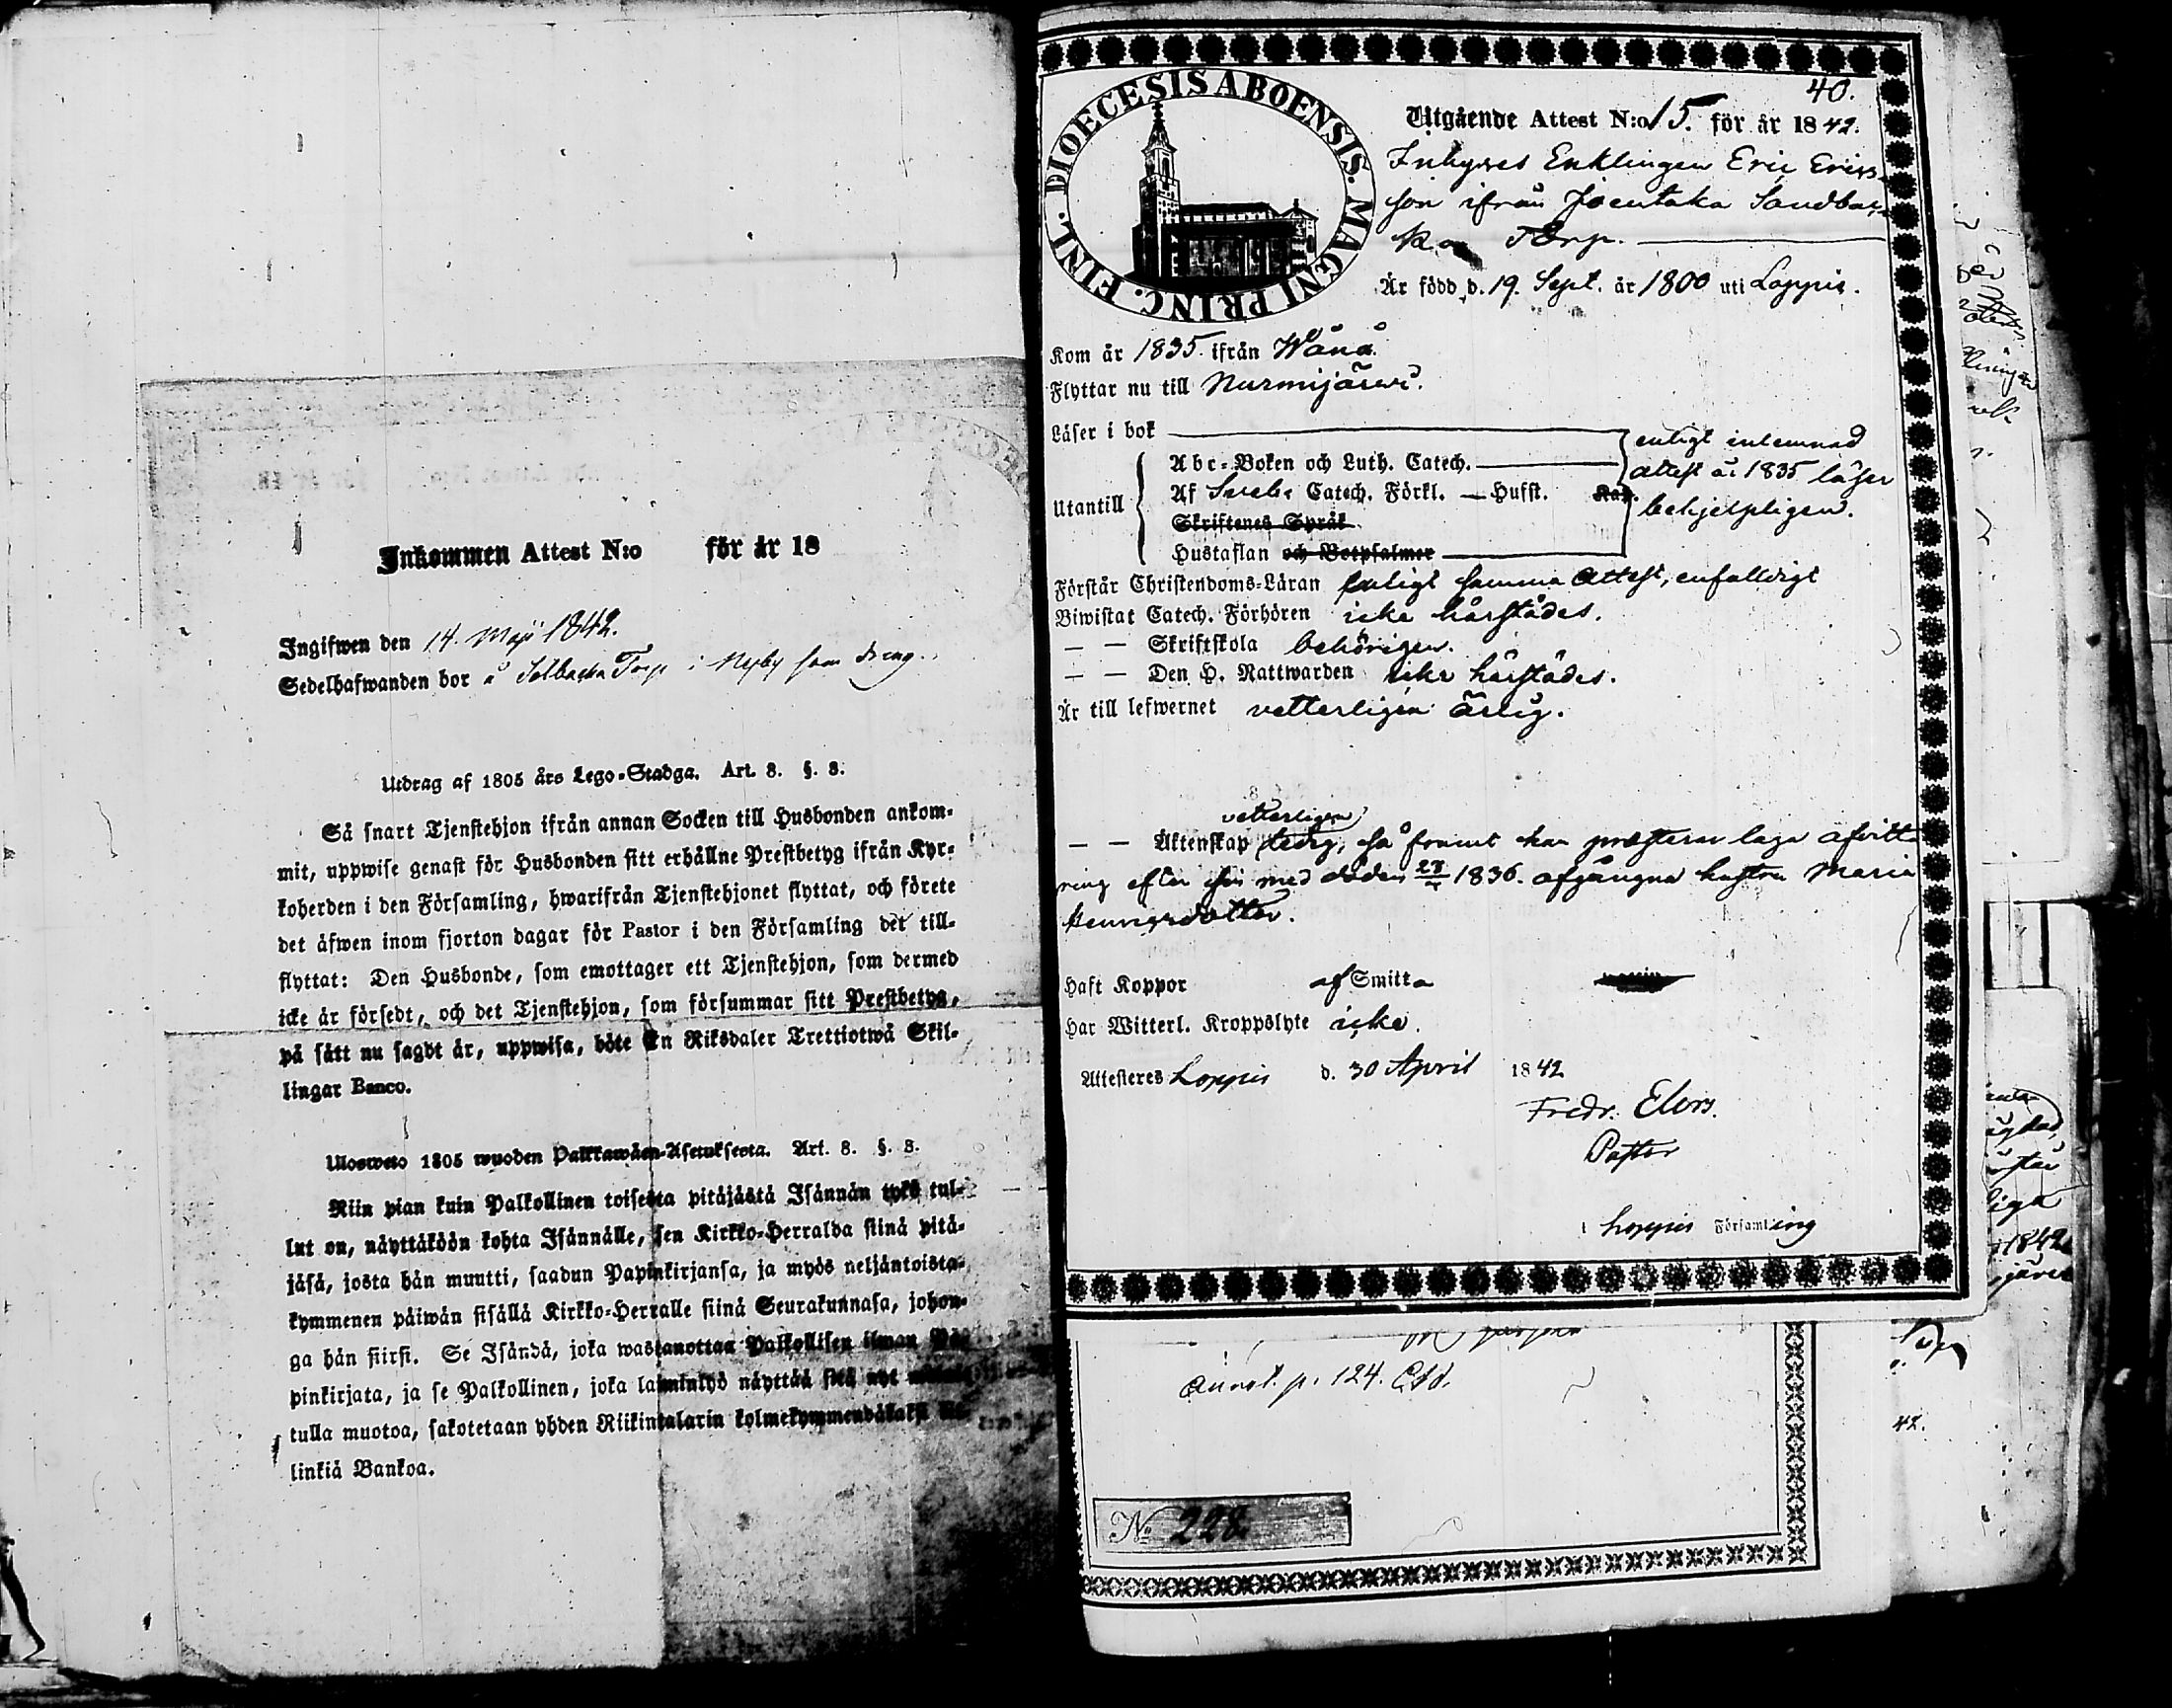 Inkommen Attest N:o för år 18
Ingifwen den 14. Maji 1842.
Sedelhafwanden bor å Torp i Nyby som dreng.
Utdrag af 1805 års Lego-Stadga. Art. 8. §. 8.
Så snart Tjenstehjon ifrån annan Socken till Husbonden ankom-
mit, uppwise genast för Husbonden sitt erhållne Prestbetyg ifrån Kyr-
koherden i den Församling, hwarifrån Tjenstehjonet flyttat, och förete
det äfwen inom fjorton dagar för Pastor i den Församling det till-
flyttat: Den Husbonde, som emottager ett Tjenstehjon, som dermed
icke är försedt, och det Tjenstehjon, som försummar sitt Prestbetyg,
på sätt nu sagdt är, uppwisa, böte En Riksdaler Trettiotwå Skil-
lingar Banco.
Ulosweto 1805 wuoden Palkkawäen-Asetuksesta. Art. 8. §. 8.
Niin pian kuin Palkollinen toisesta pitäjästä Isännän tykö tul-
lut on, näyttäköön kohta Isännälle, sen Kirkko-Herralda siinä pitä-
jäsä, josta hän muutti, saadun Papinkirjansa, ja myös neljäntoista-
kymmenen päiwän sisällä Kirkko-Herralle siinä Seurakunnasa, johon-
ga hän siirsi. Se Isändä, joka wastanottaa Palkollisen ilman Pa-
pinkirjata, ja se Palkollinen, joka laiminlyö näyttää sitä nyt
tulla muotoa, sakotetaan yhden Riikintalarin kolmekymmendäkaksi
linkiä Bankoa.
40.
DIOECESIS ABOENSIS. MAGNI PRINC. FINL.
Utgående Attest N:o 15. för år 1842.
Inhyses Enklingen Eric Erics-
son ifrån Joentaka Sandbac-
ka Torp.
Är född d. 19. Sept. år 1800 uti Loppis.
Kom år 1835. ifrån Wånå.
Flyttar nu till Nurmijärwi.
Läser i bok enligt inlemnad
Abc-Boken och Luth. Catech. attest år 1835 läser
Utantill Af Sveb. Catech. Förkl. — Husst. Kat. behjelpligen.
Skriftenes Språk
Hustaflan och Botpsalmer
Förstår Christendoms-Läran enligt samma Attest, enfalldigt
Biwistat Catech. Förhören icke härstädes.
— — Skriftskola behörigen.
— — Den H. Nattwarden icke härstädes.
Är till lefwernet vetterligen ärlig.
vetterligen
— — Äktenskap ledig, så framt han præsterar laga afvitt-
ring efter sin med döden 1836. afgångna hustru Maria
Henricsdotter.
Haft Koppor af Smitta
Har Witterl. Kroppslyte icke.
Attesteres Loppis d. 30 April 1842
Fredr. Elers.
Pastor
i Loppis Församling
Annot. p. 124.
No 228.
42.
1842